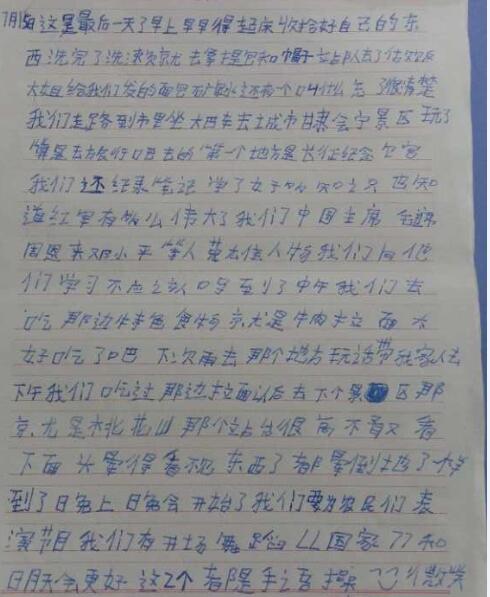 7月15日 这里最后一天了早上早早得起床收拾好自己的东
西洗完了洗漱就去拿提包和帽子站队去了
大姐给我们发的面包矿泉水还有一个叫什么忘了很清楚
我们走路到市里坐大巴车去土城市甘肃会宁景区玩了
算是去旅行吧去的第一个地方是长征纪念馆
我们还结录笔记学了好多知识也知
道红军有多么伟大了我们中国主席毛
周恩来邓小平等人英大伟人物我们向他
们学习不应 到了中午我们去
吃那边特色食物就是牛肉拉面太
好吃了吧下次再去那个地方玩话带我家人去
下午我们吃过那边拉面以后去下个景区那
就是桃花山那个站台很高不敢看
下面头晕得看不见东西了都晕倒地了
到了晚上晚会开始了我们要为农民们表
演节目我们有开场舞蹈 国家 和
明天会更好这2个都是手语操 个微笑